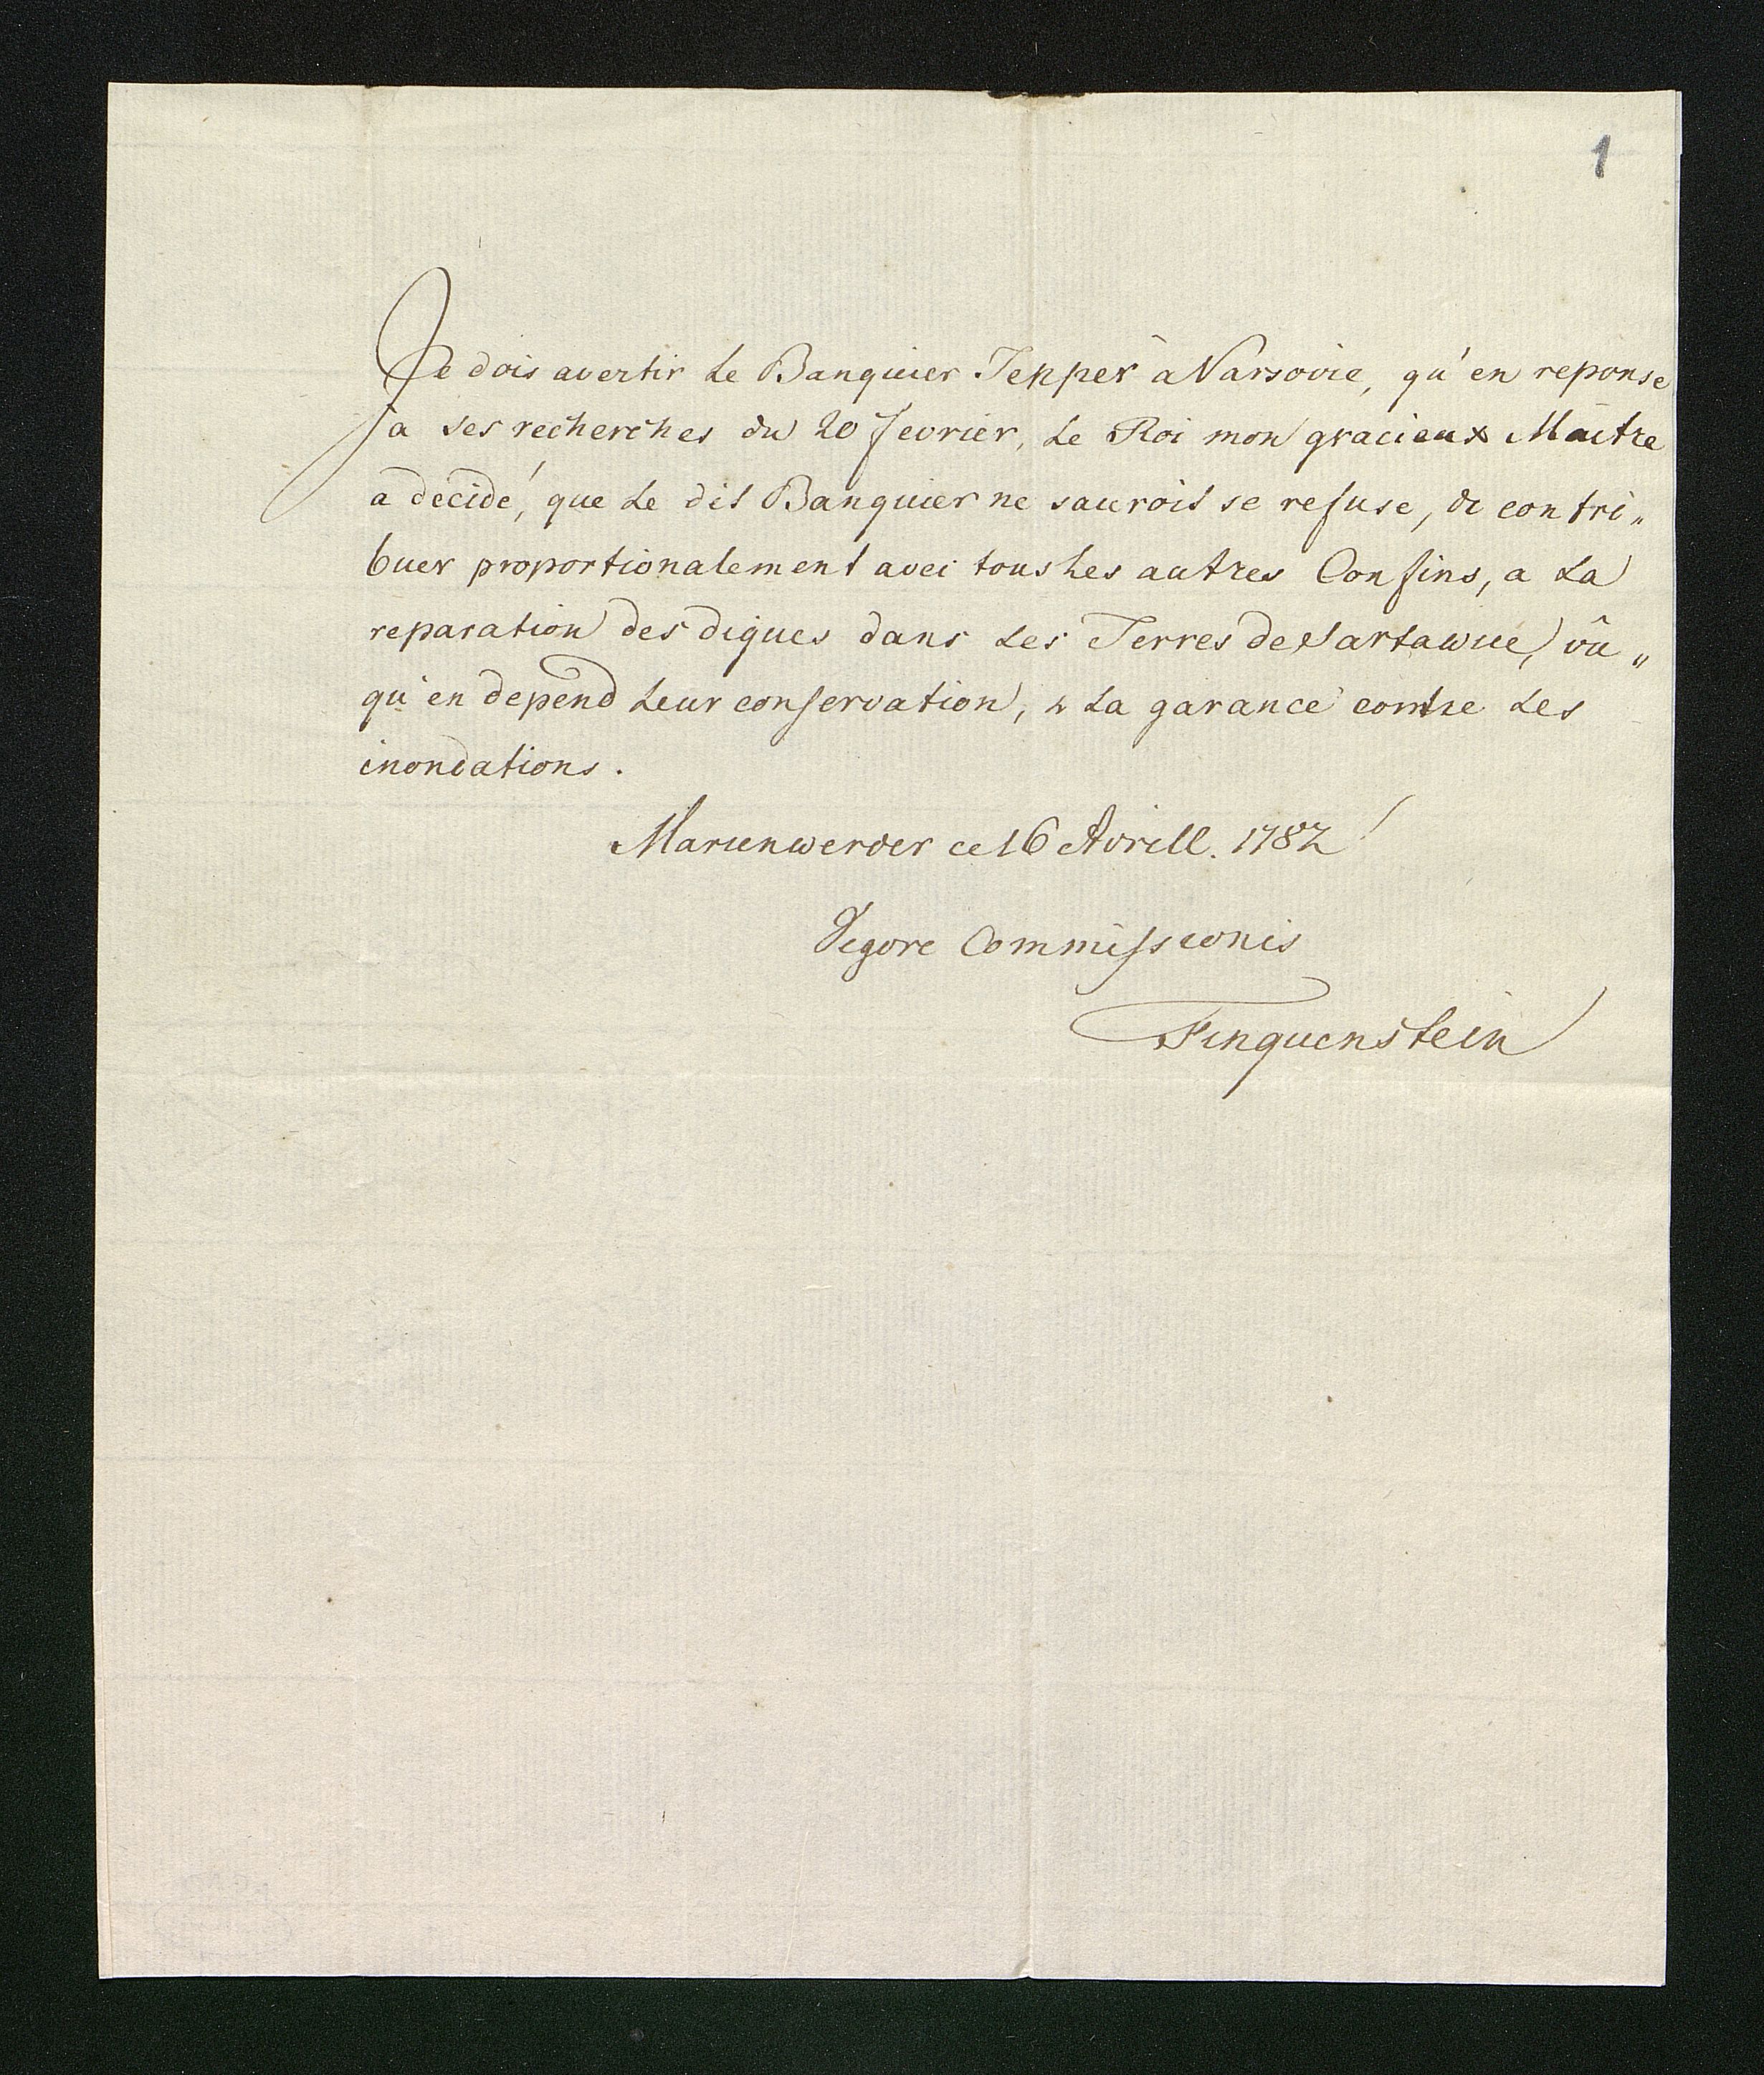 1
Je dois avertir le Banquier Tepper a Varsovie, qu'en reponse
a ses recherches du 20 fevrier, le Roi mon gracieux Maitre
a decidé, que le dit Banquier ne sauroit se refuse, de contri„
buer proportionalement avec tous les autres Confins, a la
reparation des digues dans les Terres de Sartawice, vû„
qu'en depend leur conservation, & la garance contre les
inondations.
Marienwerder ce 16 Avrill. 1782
Vigore Commissionis
Finquenstein